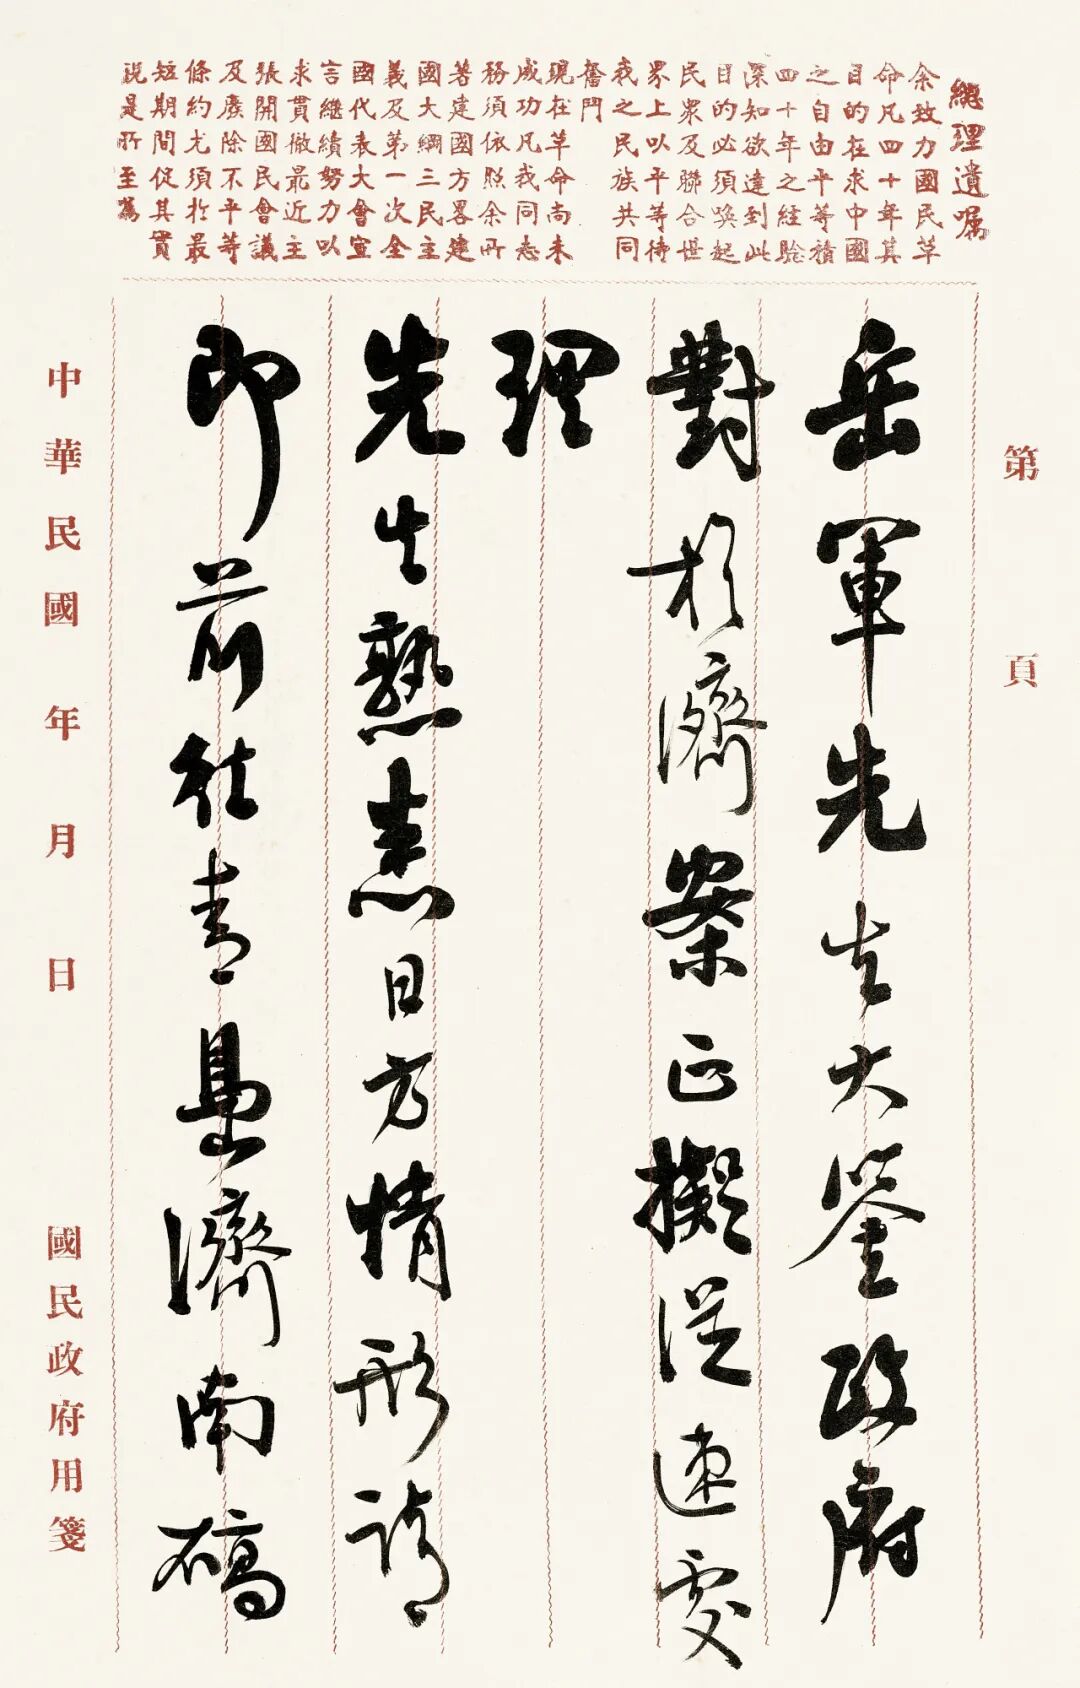 總理遺囑
余致力國民革
命凡四十年其
目的在求中國
之自由平等積
四十年之經驗
深知欲達到此
目的必須喚起
民眾及聯合世
界上以平等待
我之民族共同
奮鬥
現在革命尚未
成功凡我同志
務須依照余所
著建國方畧建
國大綱三民主
義及第一次全
國代表大會宣
言繼續努力以
求貫徹最近主
張開國民會議
及廢除不平等
條約尤須於最
短期間促其實
現是所至囑
第 頁
岳軍先生大鑒政府
對於濟案正擬從速處
理
先生熟悉日方情形請
即前往青島濟南碻
中華民國 年 月 日 國民政府用箋